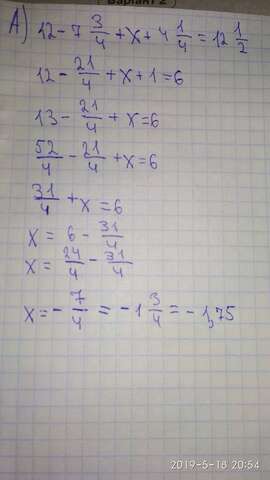 Вариант 2
А) 12 - 7 3/4 + x + 4 1/4 = 12 1/2
12 - 21/4 + x + 1 = 6
13 - 21/4 + x = 6
52/4 - 21/4 + x = 6
31/4 + x = 6
x = 6 - 31/4
x = 24/4 - 31/4
x = - 7/4 = - 1 3/4 = - 1,75
2019-5-18 20:54